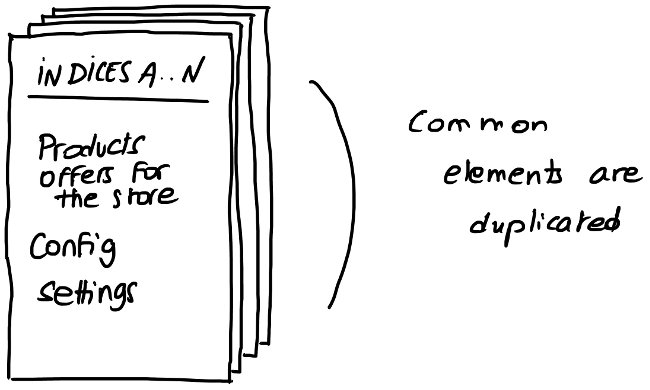 INDICES A..N
Products
offers for
the store
Config
settings
Common
elements are
duplicated